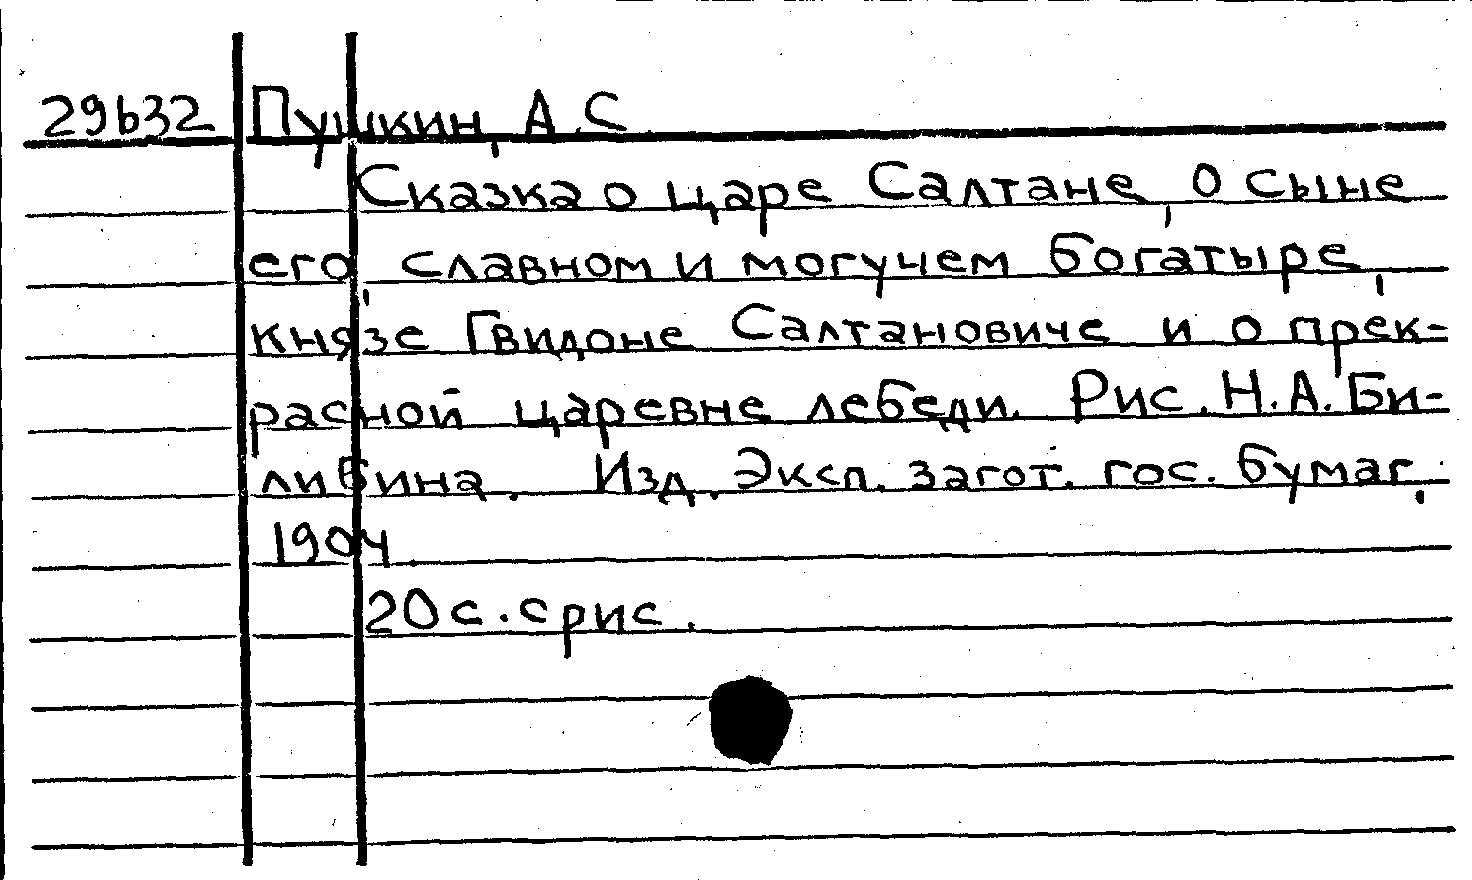 29b32 Пушкин, А.С.
Сказка о царе Салтане, о сыне
его, славном и могучем богатыре,
князе Гвидоне Салтановиче и о прек-
расной царевне лебеди. Рис. Н.А. Би-
либина. Изд. Эксп. загот. гос. бумаг.
1904.
20 с. с рис.